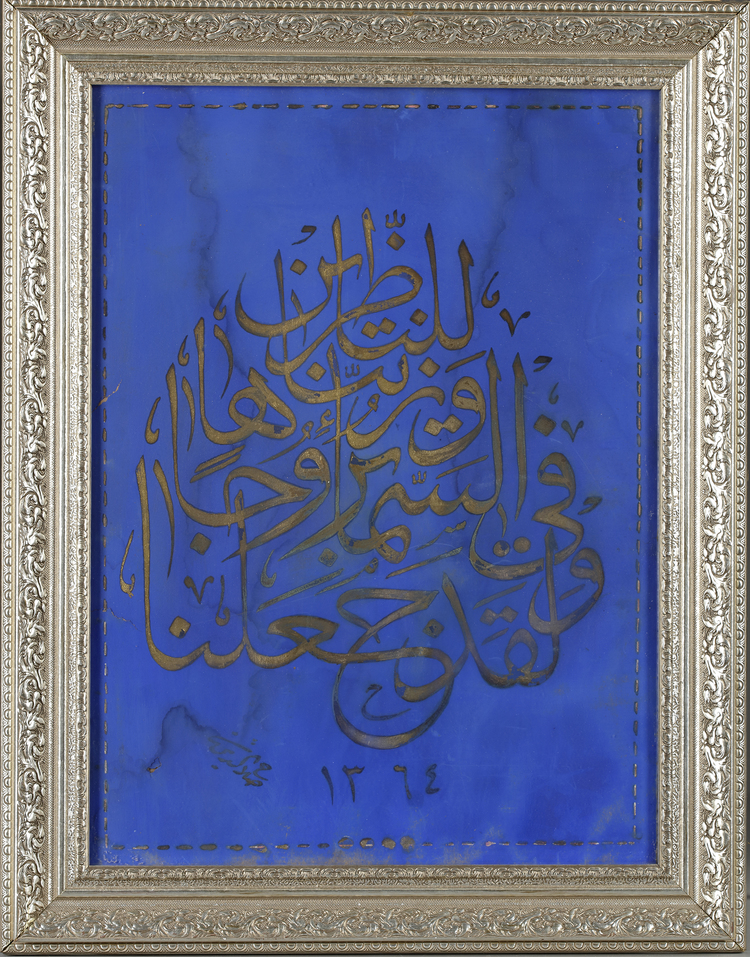 وَلَقَدْ جَعَلْنَا
فِي السَّمَاءِ بُرُوجًا
وَزَيَّنَّاهَا
لِلنَّاظِرِينَ
١٣٦٤